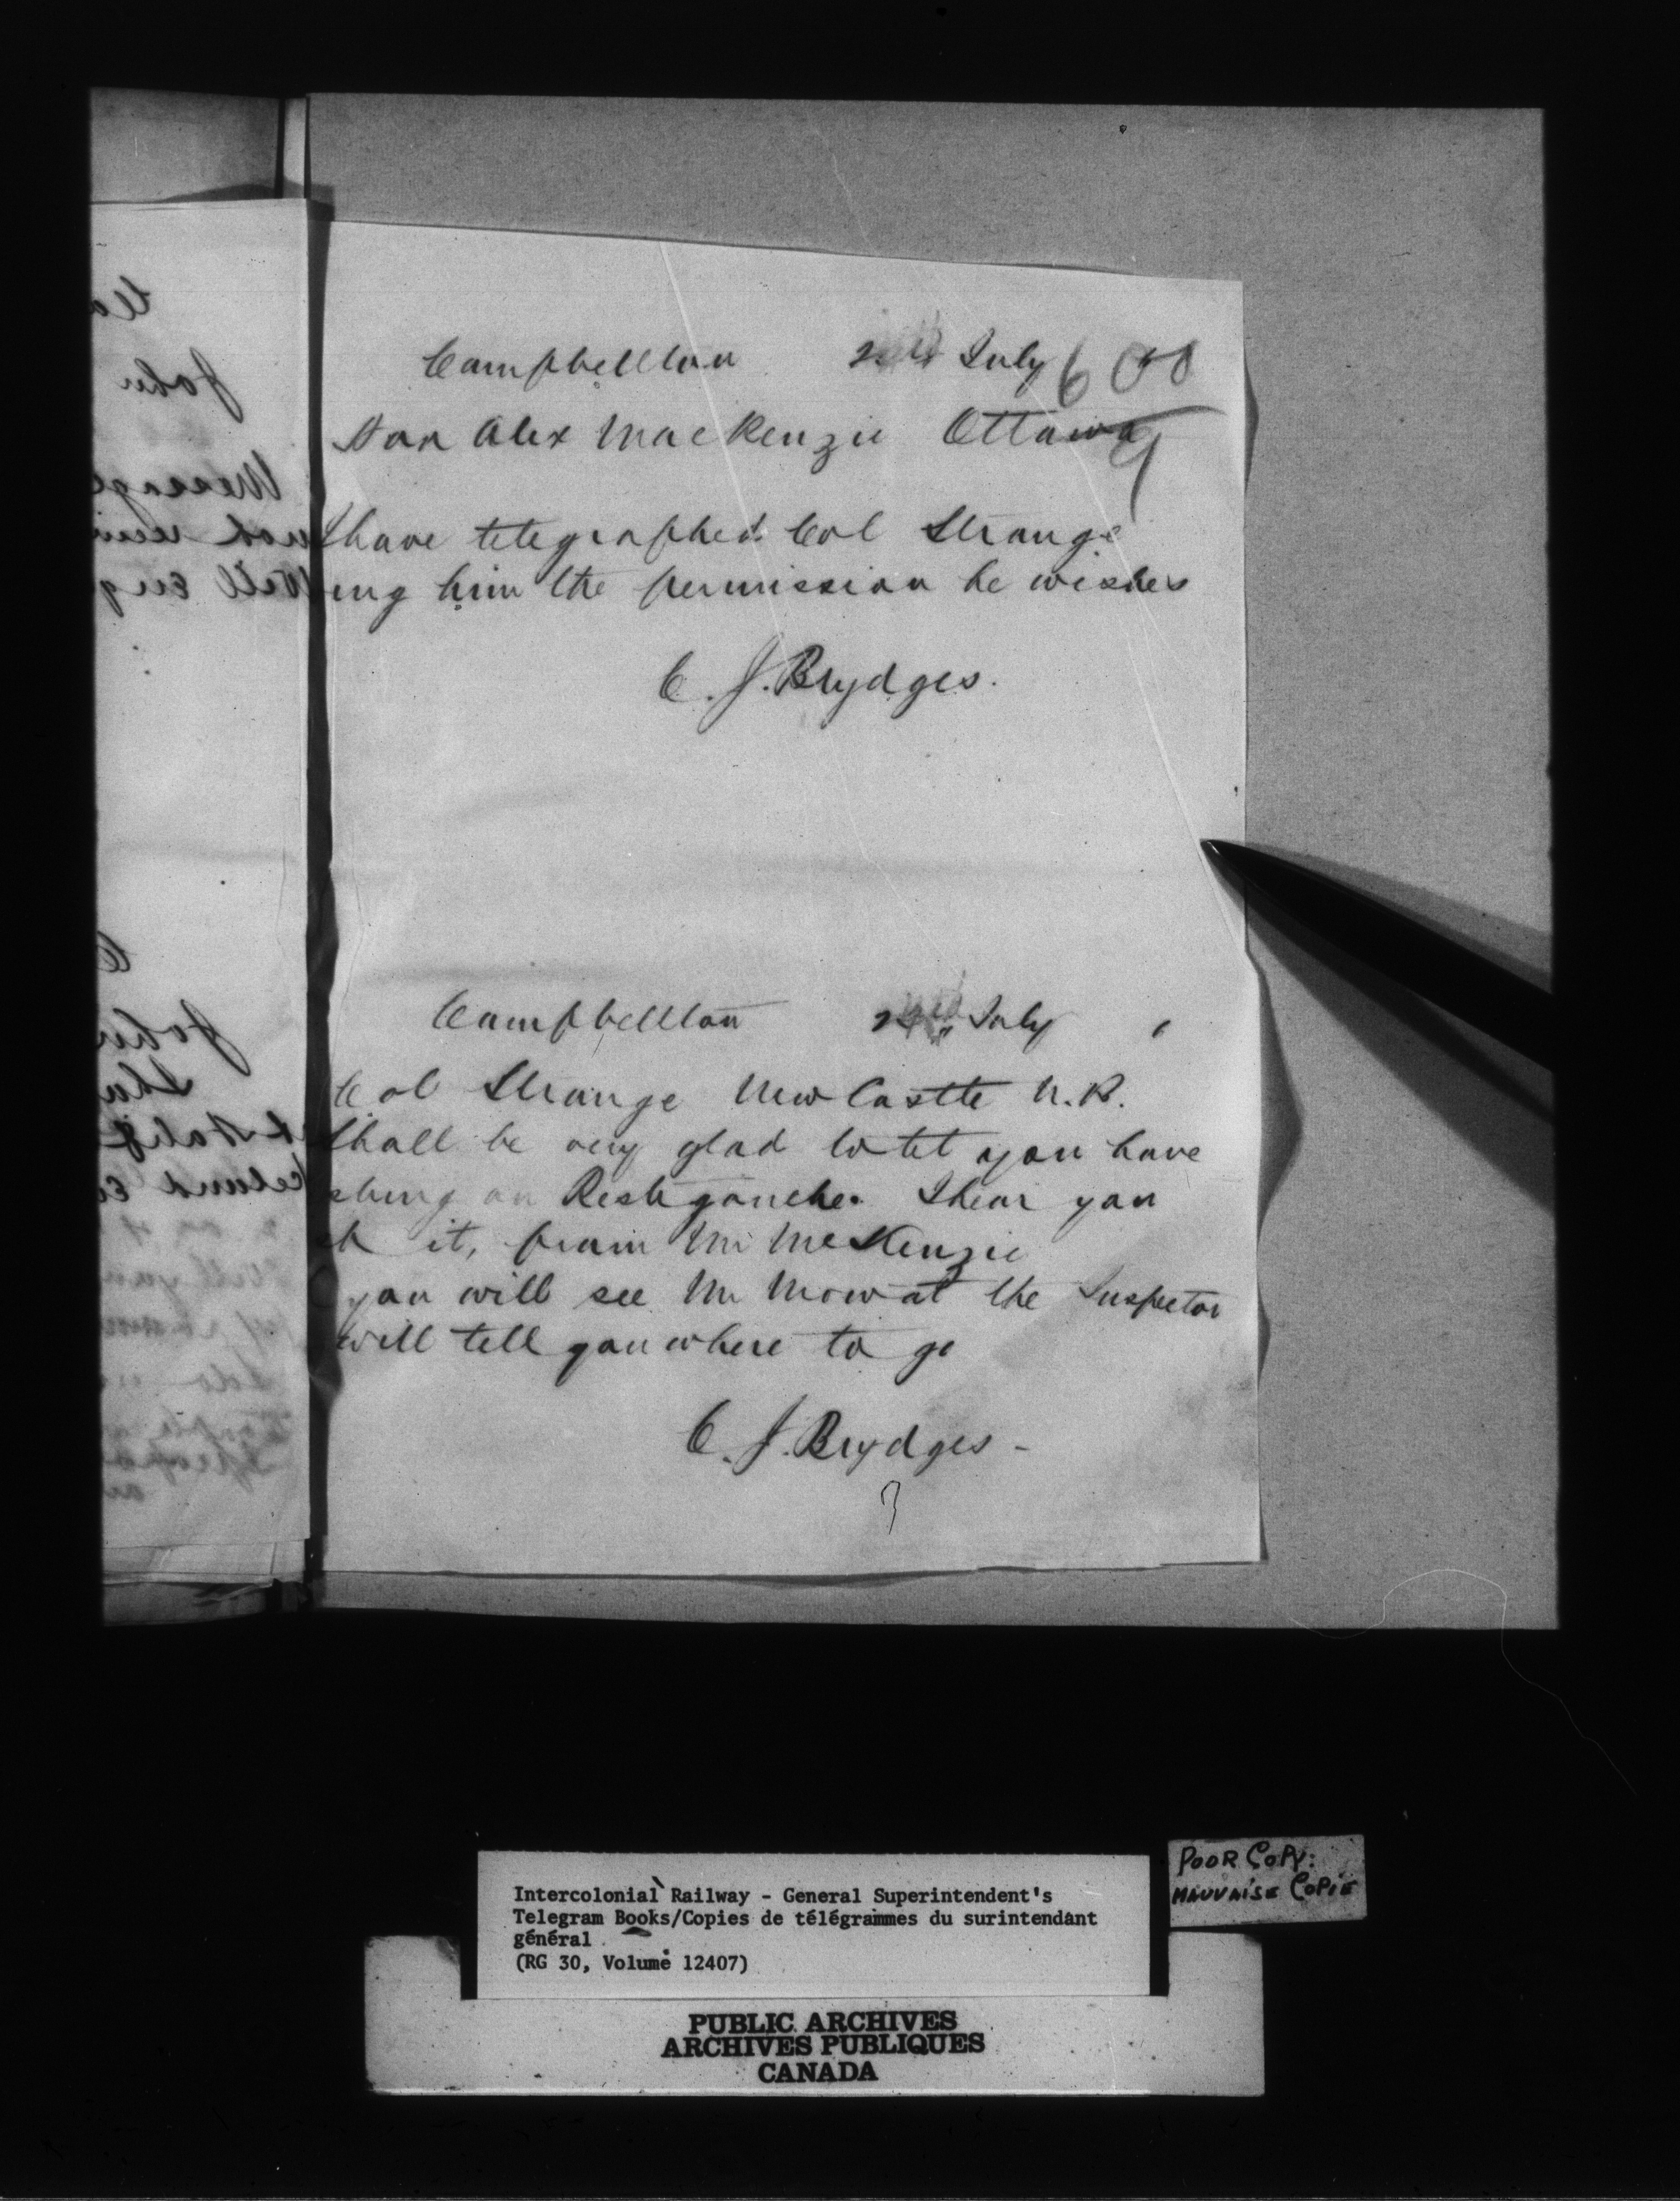 Campbellton July 600
Hon Alex MacKenzie Ottawa
I have telegraphed Col Strange
ing him the permission he wishes
C. J. Brydges.
Campbellton July
Col Strange New Castle N.B.
Shall be very glad to let you have
shing on Restigouche. I hear you
it, from Mr McKenzie
you will see Mr Mowat the Inspector
will tell you where to go
C. J. Brydges -
Intercolonial Railway - General Superintendent's
Telegram Books/Copies de télégrammes du surintendant
général
(RG 30, Volume 12407)
POOR COPY:
MAUVAISE COPIE
PUBLIC ARCHIVES
ARCHIVES PUBLIQUES
CANADA